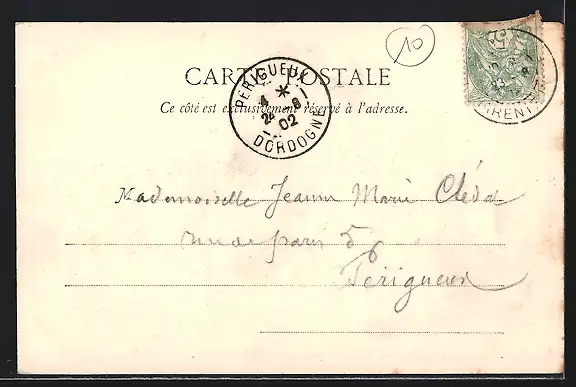 10
CARTE POSTALE
Ce côté est exclusivement réservé à l'adresse.
PÉRIGUEUX
4 *
24 -8
02
DORDOGNE
Mademoiselle Jeanne Marie Clédat
rue de paris 56
Périgueux